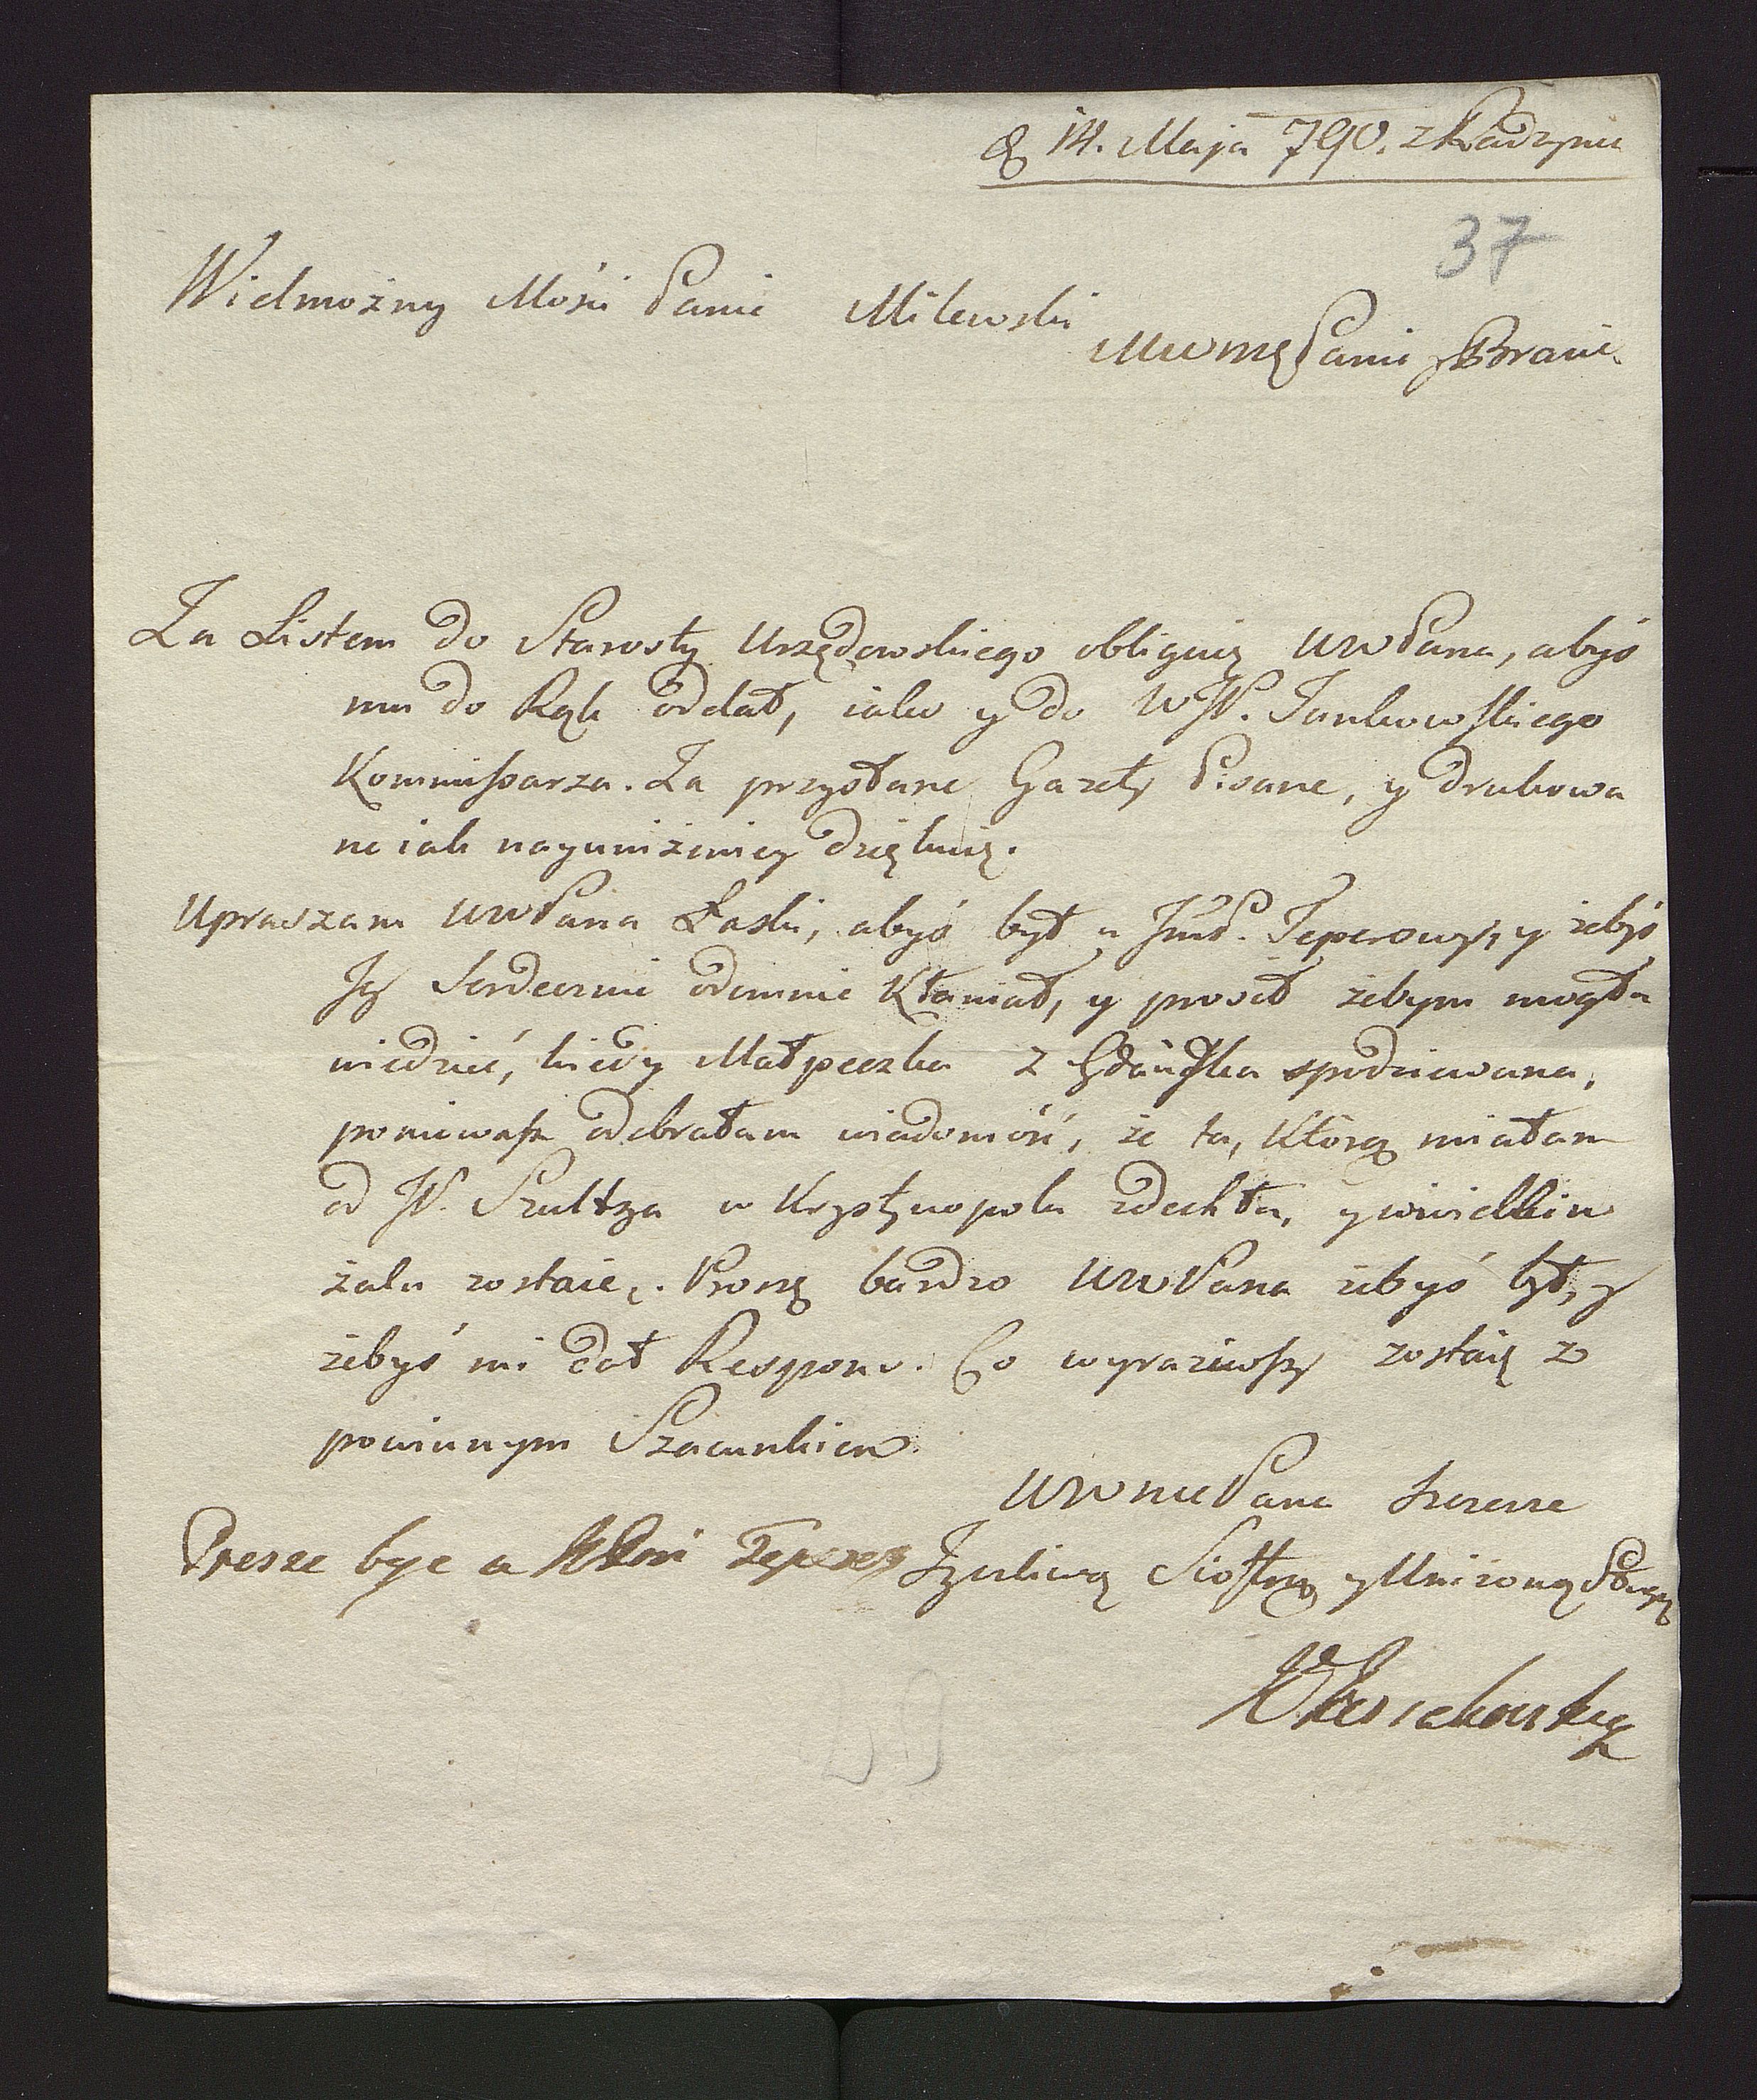 D 14. Maja 790. z Radzynia
37
Wielmożny Mości Panie Milewski
Mwmę Panie y Bracie
Za Listem do Starosty Urzędowskiego obliguię UWPana, abyś
mu do Rąk oddał, iako y do WJP. Jankowskiego
Kommissarza. Za przysłane Gazety Pisane, y drukowa
ne iak nayuniżeniey dziękuię.
Upraszam UWPana Łaski, abyś był u JmP. Teperowy, y żebyś
Jey Serdecznie odemnie Kłaniał, y prosił żebym mogła
wiedzieć, kiedy Małpeczka z Gdańska spodziewana,
poniewasz odebrałam wiadomość, że ta, którą miałam
od JP. Szultza w Krystynopolu zdechła, y wwielkim
żalu zostaię. Proszę bardzo UWPana żebyś był, y
żebyś mi dał Respons. Co wyraziwszy zostaię z
powinnym Szacunkiem
UWmePana szczerze
Prosze byc u Teperey Życzliwą Siostrą y Uniżoną Sługą